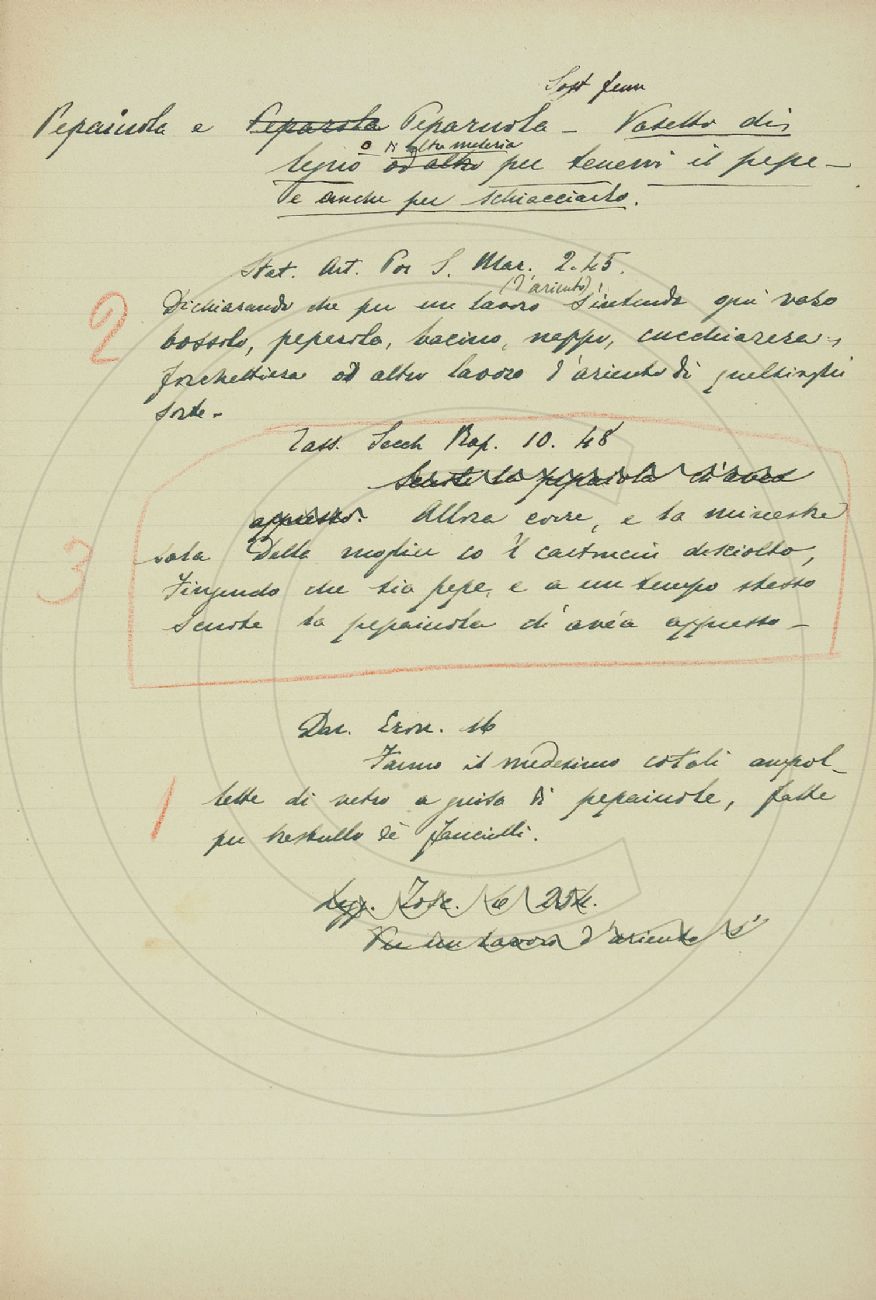 Sost fem
Pepaiuola e Peparola Peparuola – Vasetto di
legno o di altra materia od altro per tenervi il pepe –
e anche per schiacciarlo.
Stat. Art. Por S. Mar. 2.45.
(d'ariento)
Dichiarando che per un lavoro s'intenda ogni vaso
bossolo, peperola, bacino, nappo, cucchiarera,
forchettiera od altro lavoro d'ariento di qualsinglie
sorte –
2
Tass. Secch Rap. 10. 48
Scuote la pepaiola ch'avea
appresso. Allora corre, e la minestra
sola Della moglie co 'l cartuccin disciolto,
Fingendo che sia pepe, e a un tempo stesso
Scuote la pepaiuola ch'avéa appresso –
3
Dav. Eron. 16
Fanno il medesimo cotali ampol-
lette di vetro a guisa di pepaiuole, fatte
per trastullo de' fanciulli.
1
Legg. Tosc. 16 254.
Per un lavoro d'ariento s'